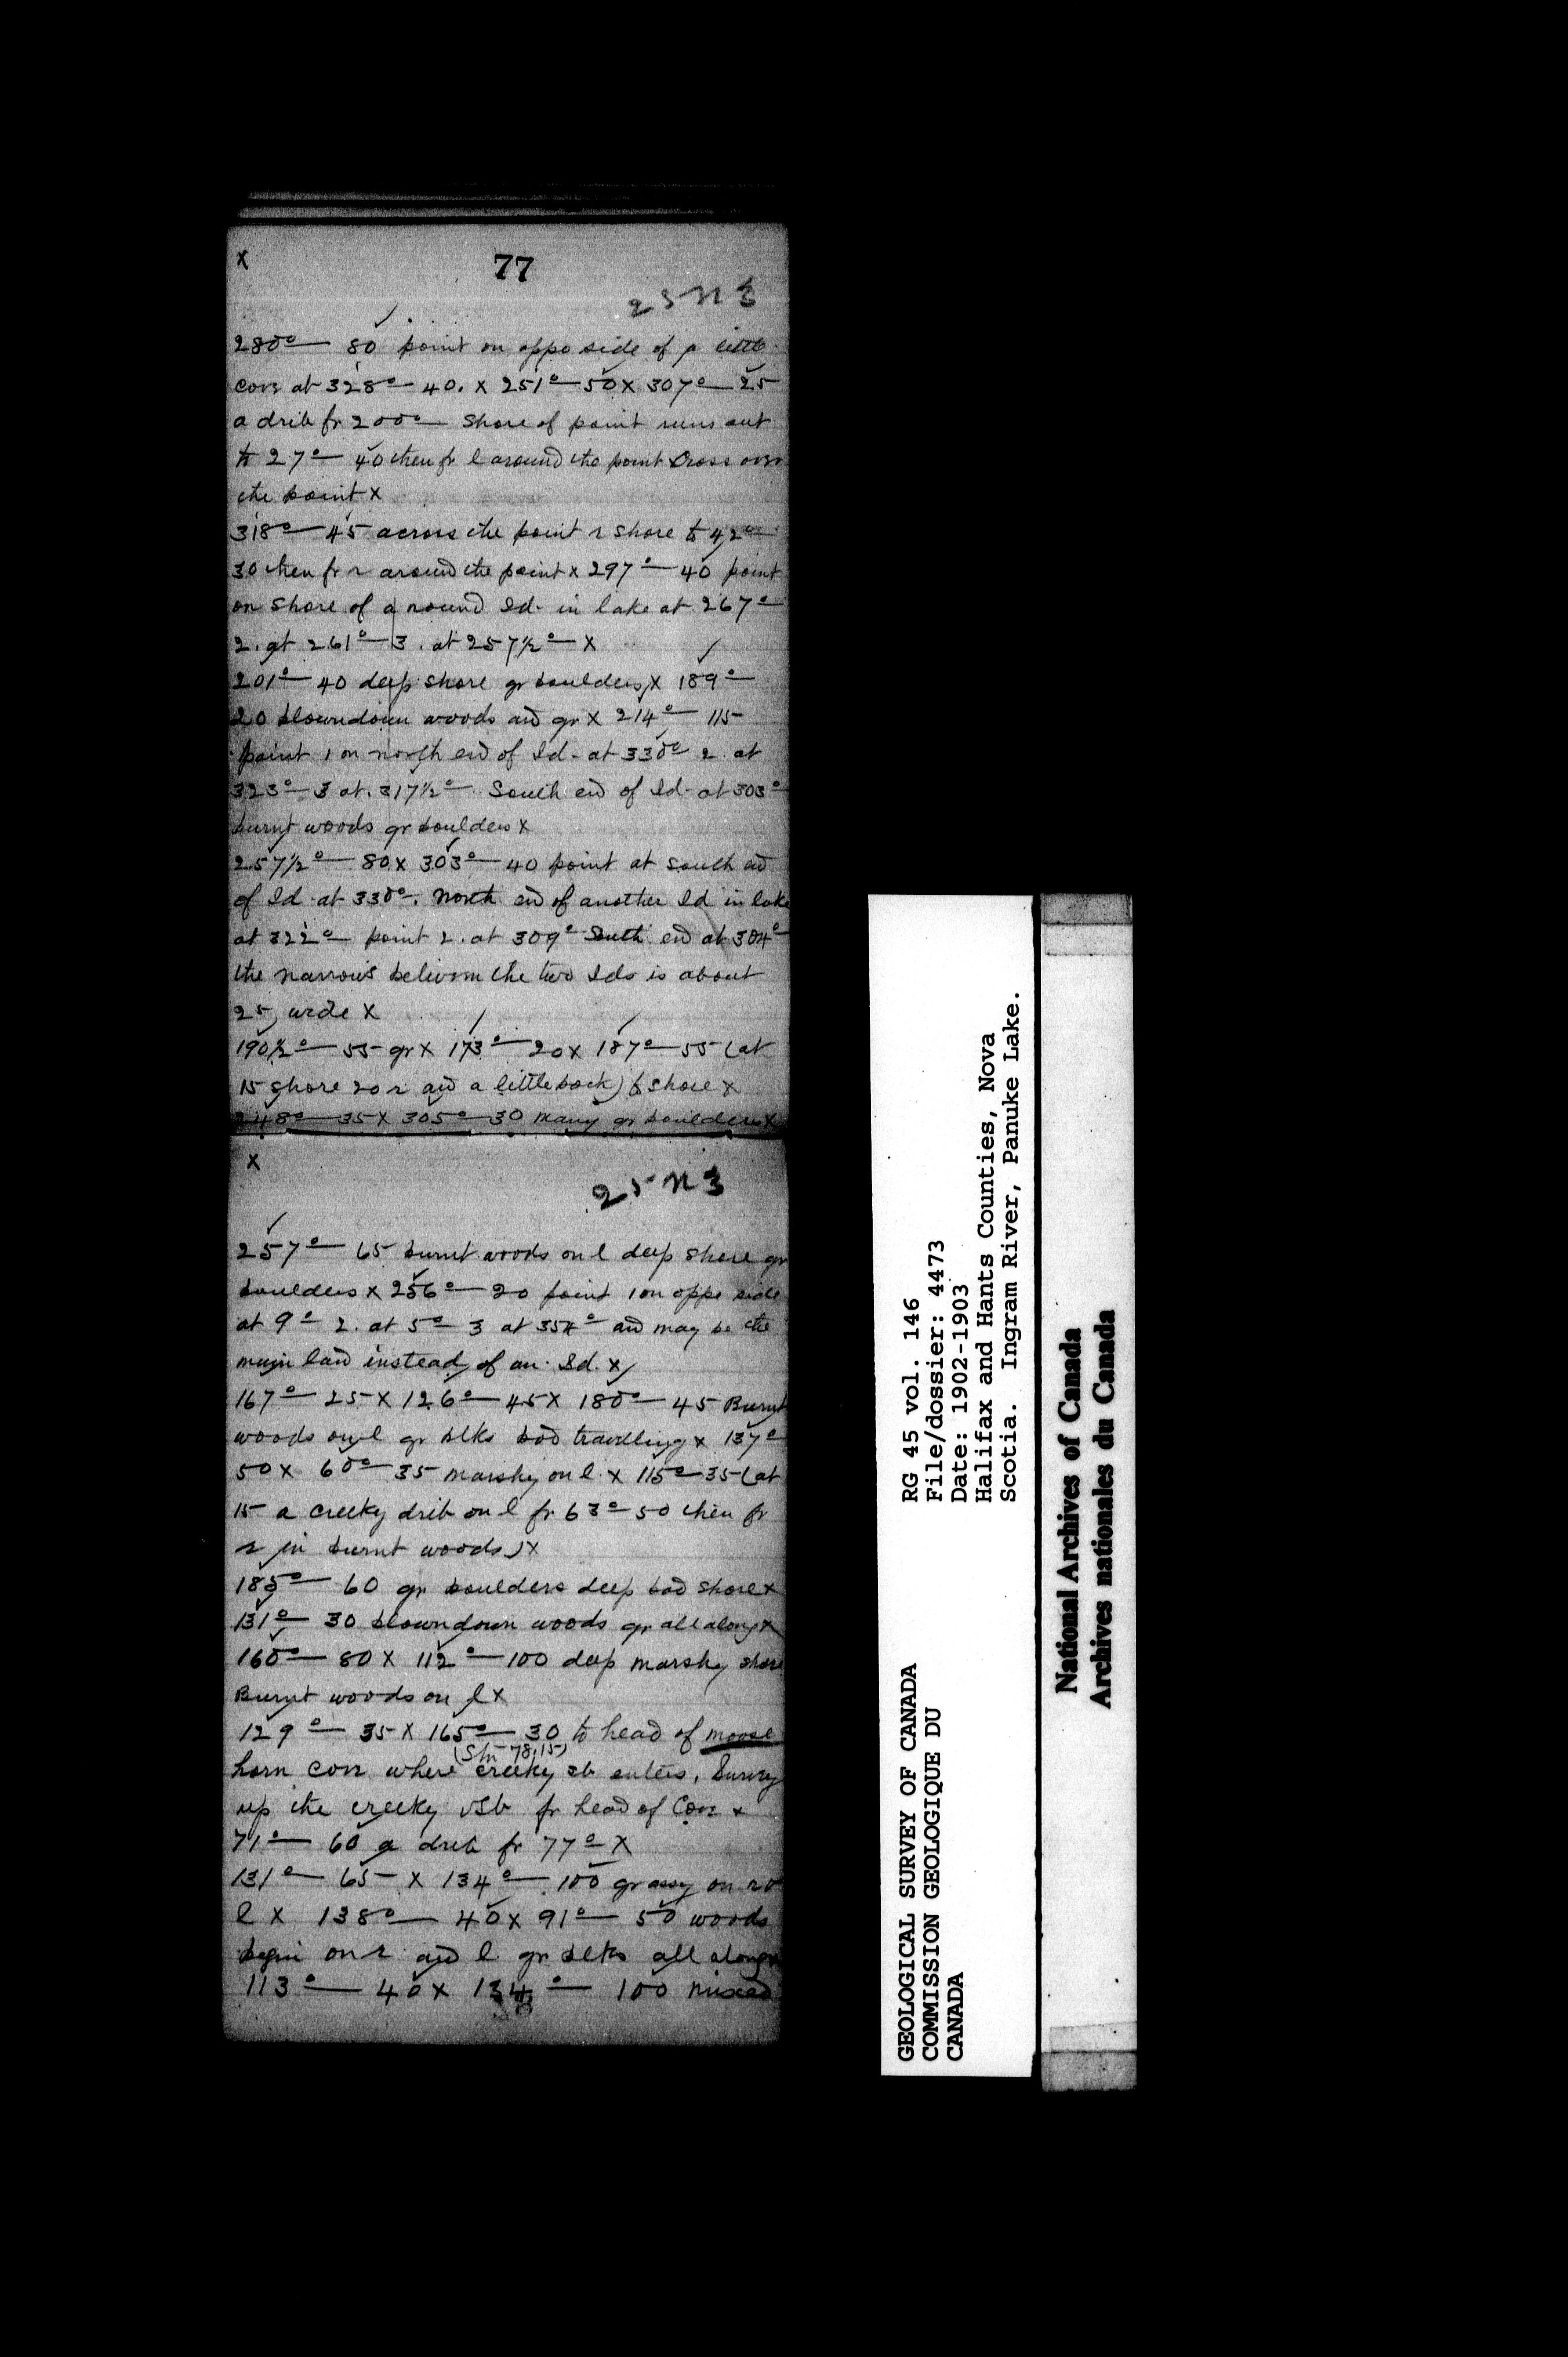 x
77
25 N 3
280° — 80 point on oppo side of a little
cove at 328° — 40. x 251° — 50 x 307° — 25
a drib fr 200° — Shore of point runs out
to 27° — 40 then fr l around the point Cross over
the point x
318° — 45 across the point r shore to 42° —
30 then fr r around the point x 297° — 40 point
on shore of a round Id. in lake at 267° —
2. at 261° — 3. at 257½° — x
201° — 40 deep shore gr boulders x 189° —
20 blowndown woods and gr x 214° — 115
point 1 on north end of Id. at 330° 2. at
323° — 3 at 317½° — South end of Id. at 303° —
burnt woods gr boulders x
257½° — 80 x 303° — 40 point at south end
of Id. at 330°. North end of another Id in lake
at 322° — point 2. at 309° South end at 304° —
the narrows between the two Ids is about
25 wide x
190½° — 55 gr x 173° — 20 x 187° — 55 (at
15 shore 20 r and a little back) to shore x
248° — 35 x 305° — 30 many gr boulders x
x
25 N 3
257° — 65 burnt woods on l deep shore gr
boulders x 256° — 20 point 1 on oppo side
at 9° — 2. at 5° — 3 at 354° — and may be the
main land instead of an Id. x
167° — 25 x 126° — 45 x 180° — 45 Burnt
woods on l gr blks bad travelling x 137° —
50 x 60° — 35 marshy on l x 115° — 35 (at
15 a creeky drib on l fr 63° — 50 then fr
r in burnt woods) x
185° — 60 gr boulders deep bad shore x
131° — 30 blowndown woods gr all along x
160° — 80 x 112° — 100 deep marshy shore
Burnt woods on l x
129° — 35 x 165° — 30 to head of moose
(Stn 78,15)
horn cove where creeky sb enters, Survey
up the creeky sb fr head of Cove x
71° — 60 a drib fr 77° — x
131° — 65 x 134° — 100 grassy on r &
l x 138° — 40 x 91° — 50 woods
begin on r and l gr blks all along x
113° — 40 x 134° — 100 mixed
GEOLOGICAL SURVEY OF CANADA
COMMISSION GEOLOGIQUE DU
CANADA
RG 45 vol. 146
File/dossier: 4473
Date: 1902-1903
Halifax and Hants Counties, Nova
Scotia. Ingram River, Panuke Lake.
National Archives of Canada
Archives nationales du Canada